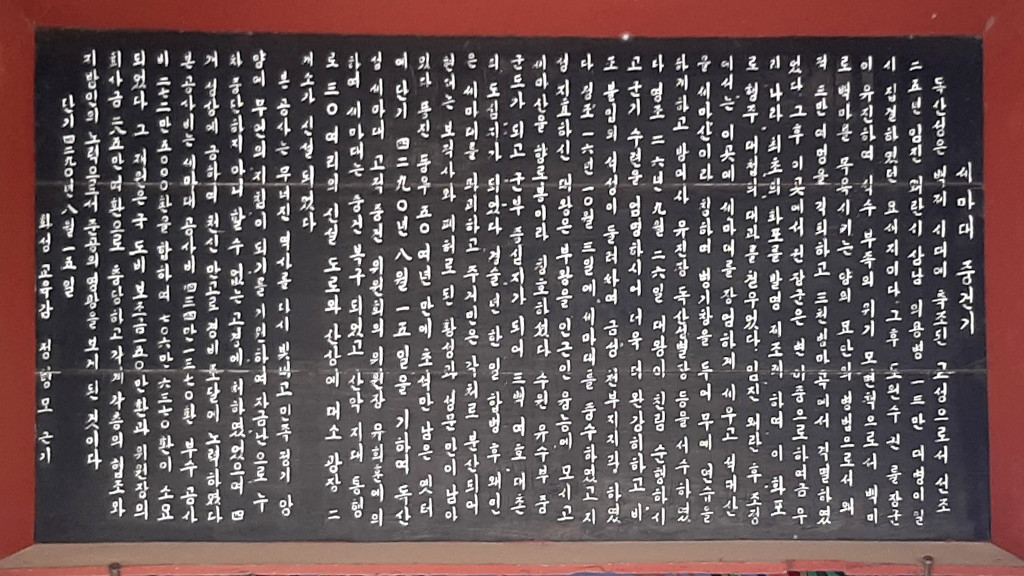 세마대 중건기
독산성은 백제 시대에 축조된 고성으로서 선조
二五년 임진 왜란시 삼남 의용병 一三만 대병이 일
시 집결하였던 요새지이다 그후 도원수 권률장군
이 유진하여 식수 부족의 위기 모면책으로서 백미
로 백마를 목욕시키는 양의 묘안의 병법으로서 왜
적 三만여명을 격퇴하고 三천병마 격멸하였
었다 그후 이곳에서 권장군은 변이중으로하여금 우
리나라 최초의 화포를 발명 제조케 하여 이 화포
로 행주 대첩의 대과를 거두었다 임진 왜란 후 조정
에서는 이곳에 세마대를 장엄하게 세우고 석대산
을 세마산이라 칭하며 병기창을 두어 무예 연습을
하게하고 방어사 유진장 독산성 등을 서수하였
다 영조 二六년 九월 二六일 대왕이 친림 순행하시
고 군기 수련을 엄명하시어 더욱 더 완강히하고 비
로 불입의 세성이 들려하며 금성 천부지지라 하였
다 정조 一六년 一〇월 三일에 세마대를 중수하였고 지
성 지효하신 대왕은 부왕을 인근인 융능에 모시고
세마산을 향로봉이라 칭호하였다 수원 유수부 중
군도가 되고 군부 중심지가 되어 三백 여호 대촌
의 도심지가 되었다 경술년 한일 합병후 왜인
은 세마대를 파괴하고 주거민은 각처로 분산되어
현적는 보적사와 폐허로된 황성과 성문만이 남아
있다 폭진 풍우 五〇여년만에 초석만 남은 옛터
에 단기 四二九〇년 八월 一五일을 기하여 독산
성 세마대 고적 중건 위원회의 위원장 유희준에의
하여 세마대는 중건 복구되었고 산악지대 통행
로 三〇여리의 신설 도로와 산상에 대소 광장 二
개소가 신설되었다
본 공사는 무너진 역사를 다시 빛내고 민족 정기 앙
양의 무언의 지침이 되기를 기원하며 자금난으로 누
차 중단하지 아니 할수 없는 고경에 처하였었으며 四
개 성상에 긍하여 헌신 만고로 경비 조달에 노력하였다
본 공사비는 세마대 공사비 四三四만 一二七〇환 부수 공사
비 二七二만 五〇〇〇환을 합하여 七〇六만 六二七〇환이 소요
되었다 그 재원은 국 도비 보조금 一五〇만환과 위원장의
희사금 三八五만여환으로 충당하고 각계 각층의 협조와
지방민의 노력으로서 준공의 영광을 보게 된 것이다
단기 四二九〇년 八월 一五일
화성 교육감 정창모 근기